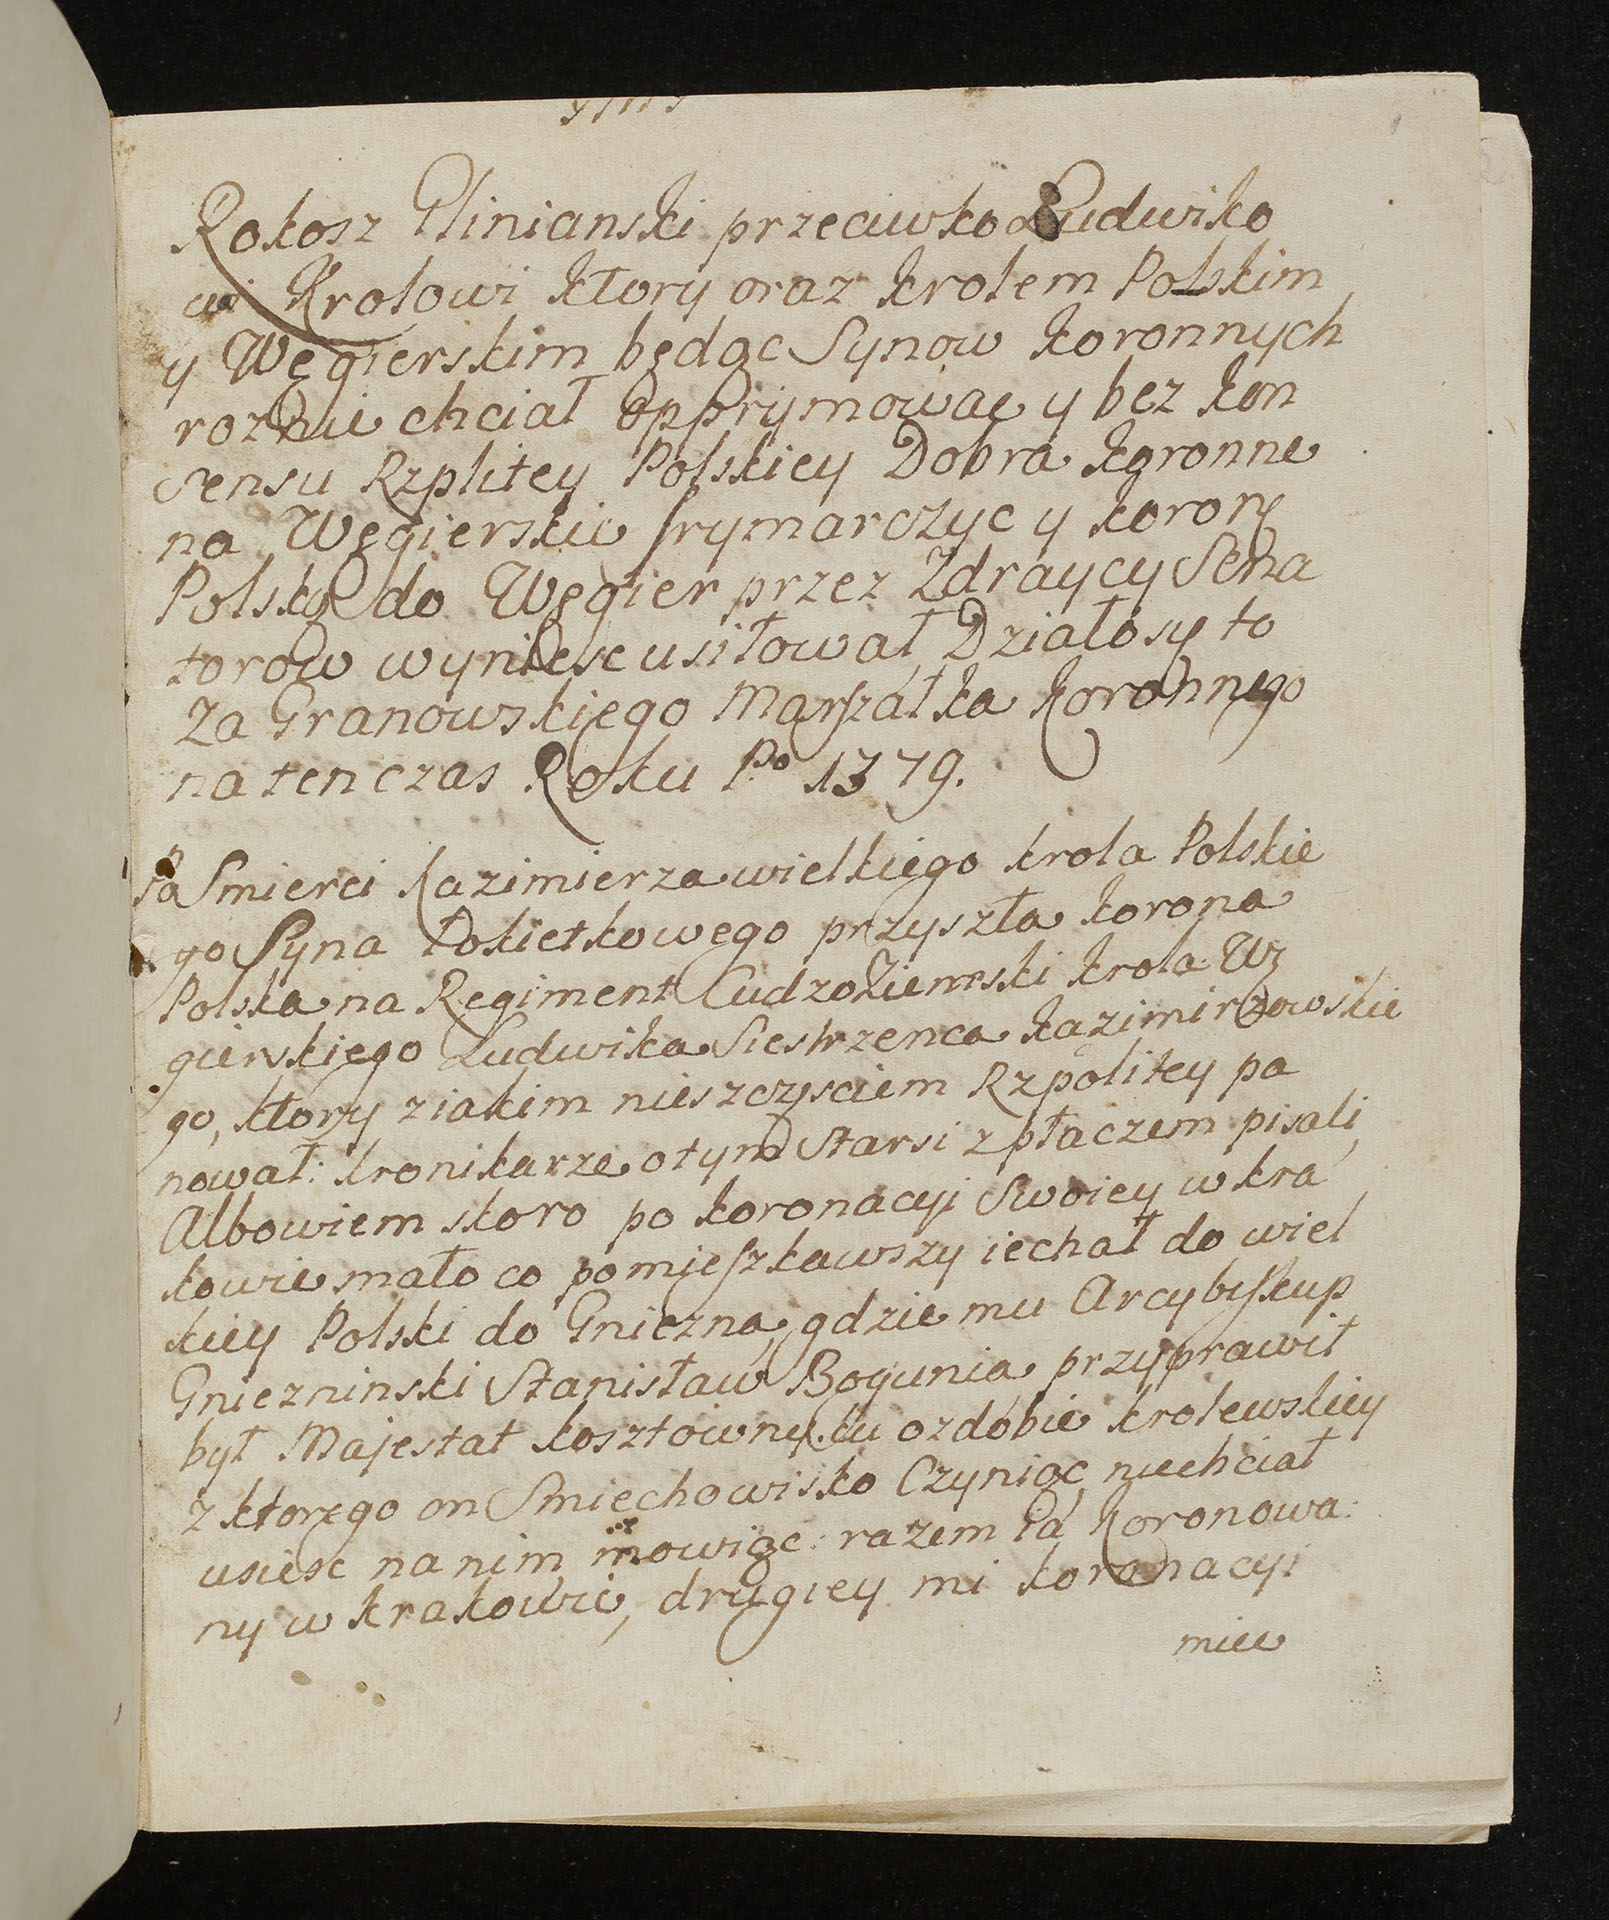 Rokosz Glinianski przeciwko Ludwiko
wi Krolowi ktory oraz krolem Polskim
y Węgierskim będąc Synow koronnych
roznie chciał opprymowac y bez kon
sensu Rzplitey Polskiey Dobra koronne
na Węgierskie frymarczyc y koronę
Polską do Węgier przez Zdraycy Sena
torow wyniesc usiłował Działosię to
Za Granowskiego Marszałka koronnego
na ten czas Roku Po 1379.
Po Smierci Kazimierza wielkiego krola Polskie
go Syna Łokietkowego przyszła korona
Polska na Regiment CudzoZiemski krola Wę
gierskiego Ludwika Siestrzenca kazimirzowskie
go, ktory z iakim nieszczęsciem Rzpolitey pa
nował: kronikarze o tym Starsi z płaczem pisali
Albowiem skoro po koronacyi Swoiey w kra
kowie mało co pomieszkawszy iechał do wiel
kiey Polski do Gniezna, gdzie mu Arcybiskup
Gniezninski Stanisław Bogunia przyprawił
był Majestat kosztowny ku ozdobie krolewskiey
z ktorego on Smiechowisko Czyniąc niechciał
usiesc na nim mowiąc: razem ia koronowa:
ny w krakowie, drugiey mi koronacyi
miee